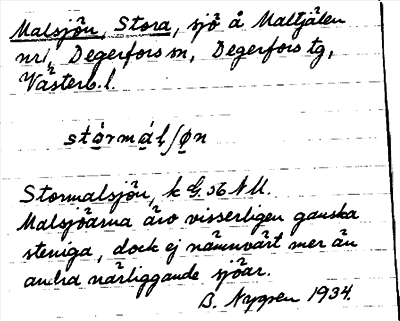 Malsjön, Stora, sjö å Maltjälen
nr 1, Degerfors sn, Degerfors tg,
Västerb. l.
Stormalsjön, k bl. 56 NU.
Malsjöarna äro visserligen ganska
steniga, dock ej nämnvärt mer än
andra närliggande sjöar.
B. Nygren 1934.